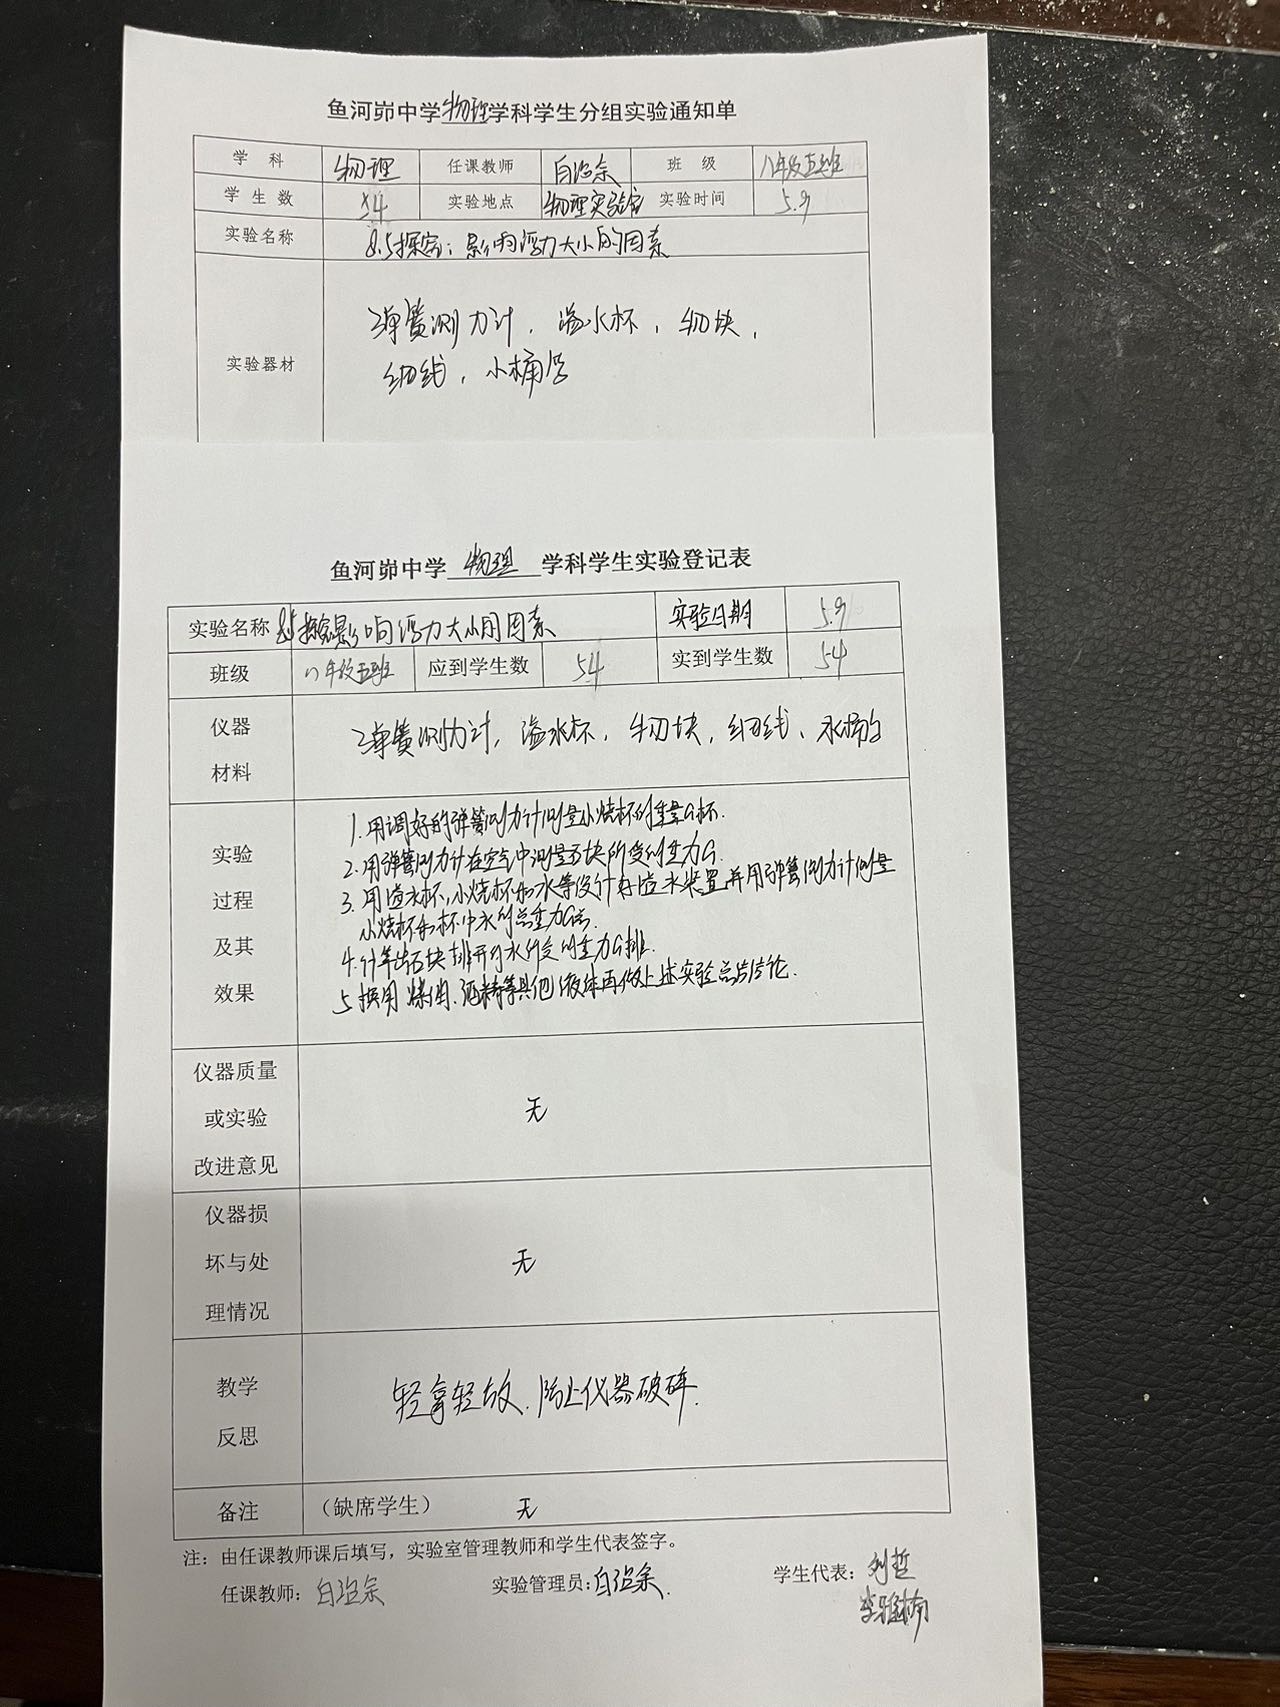 鱼河峁中学物理学科学生分组实验通知单
学 科 物理 任课教师 白治余 班 级 八年级五班
学生数 54 实验地点 物理实验室 实验时间 5.9
实验名称 8.5探究:影响浮力大小的因素
实验器材 弹簧测力计,溢水杯,物块,
细线,小桶等
鱼河峁中学 物理 学科学生实验登记表
实验名称 8.5探究影响浮力大小的因素 实验日期 5.9
班级 八年级五班 应到学生数 54 实到学生数 54
仪器材料 弹簧测力计,溢水杯,物块,细线、水桶
实验过程及其效果
1.用调好的弹簧测力计测量小烧杯的重量G杯.
2.用弹簧测力计在空气中测量石块所受的重力G.
3.用溢水杯,小烧杯和水等设计好溢水装置,并用弹簧测力计测量
小烧杯和杯中水的总重力G总.
4.计算出石块排开的水所受的重力G排.
5.换用煤油.酒精等其他液体再做上述实验总结结论.
仪器质量或实验改进意见 无
仪器损坏与处理情况 无
教学反思 轻拿轻放、防止仪器破碎.
备注 (缺席学生) 无
注:由任课教师课后填写,实验室管理教师和学生代表签字。
任课教师:白治余 实验管理员:白治余. 学生代表:刘哲
李雅楠